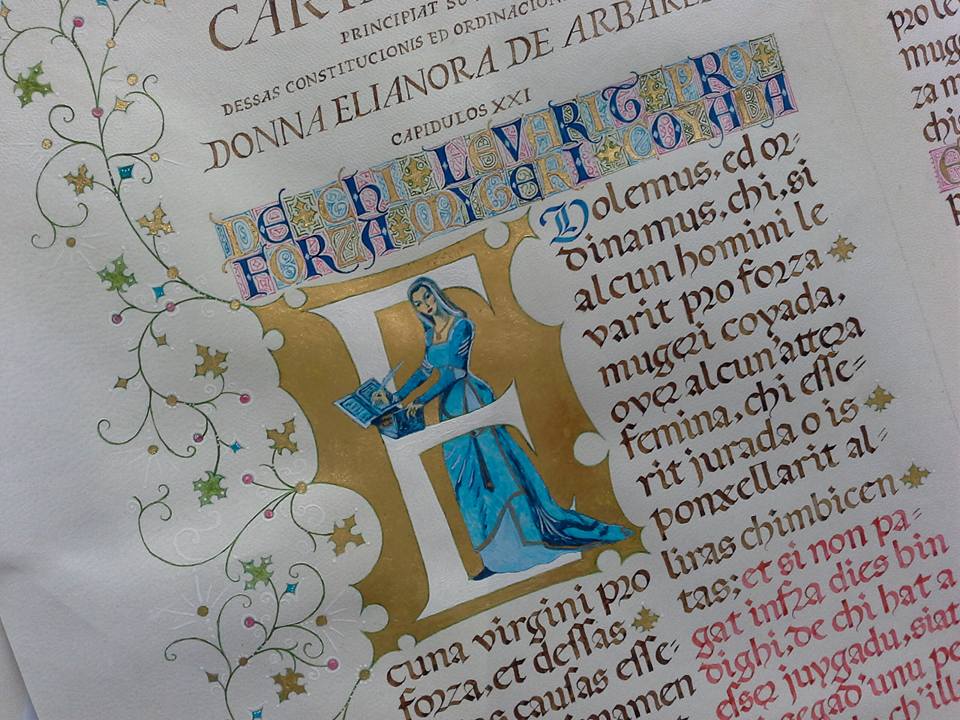 PRINCIPIAT SU
DESSAS CONSTITUCIONIS ED ORDINACION
DONNA ELIANORA DE ARBAREE
CAPIDULOS XXI
DE CHI LEVARIT PRO
FORZA MYGERI COYADA
Dolemus, ed or-
dinamus, chi, si
alcun homini le
varit pro forza
mugeri coyada,
over alcun'attera
femina, chi esse=
rit jurada o is
ponxellarit al=
cuna virgini pro
forza, et dessas
causas esse=
liras chimbicen
tas; et si non pa=
gat infra dies bin
dighi, de chi hat a
esser juygadu, siat
segad'unu pe
ch'ill
pro le
muge
za m
chi